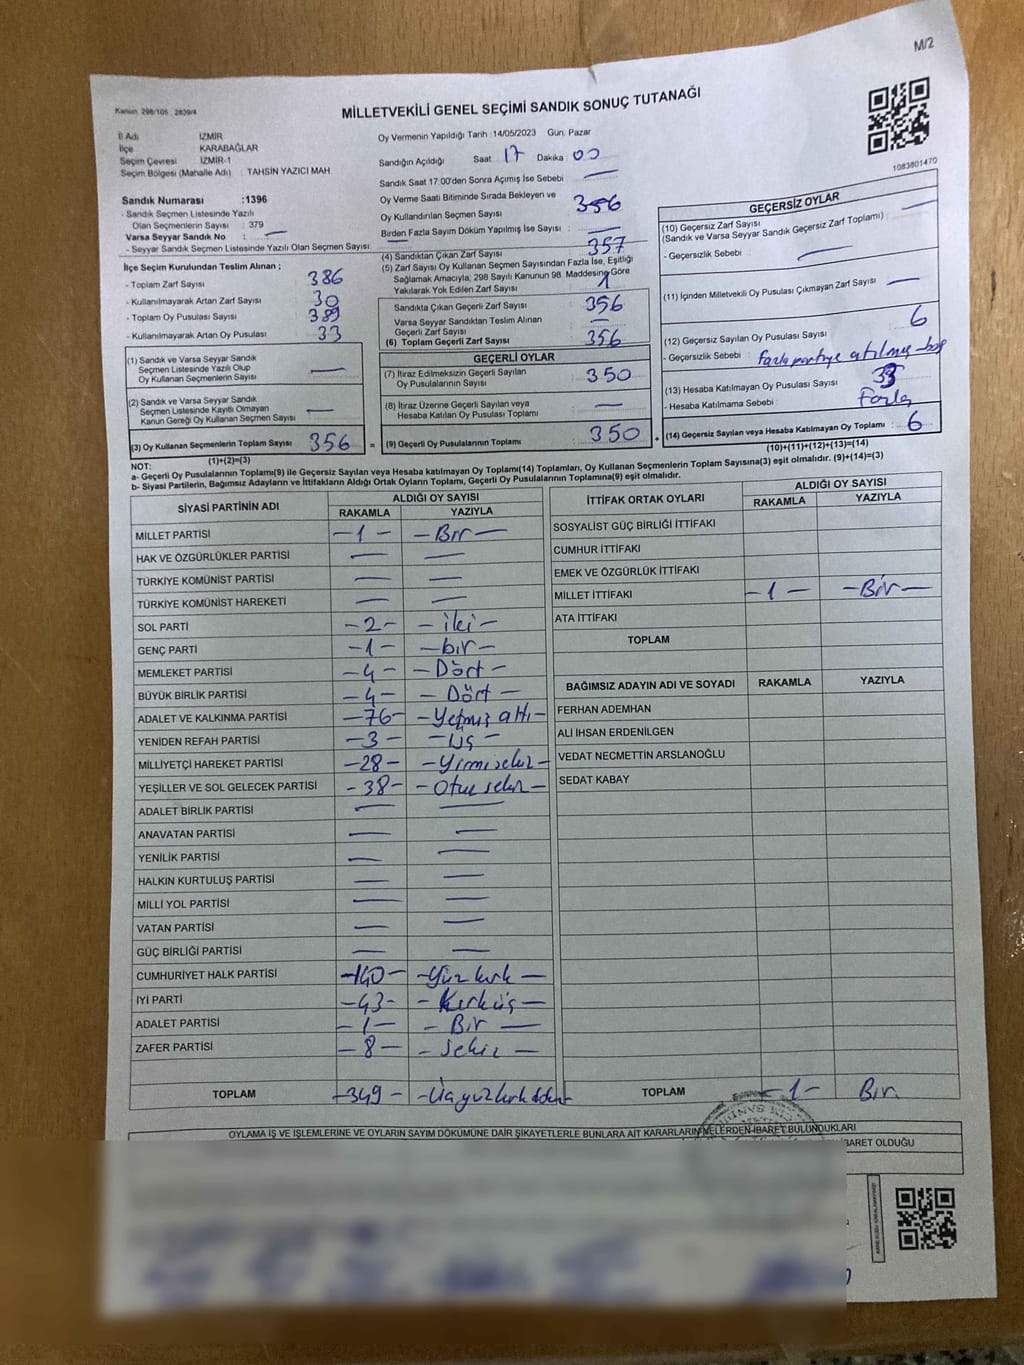 M/2
Kanun 298/105 2839/4
MİLLETVEKİLİ GENEL SEÇİMİ SANDIK SONUÇ TUTANAĞI
1083801470
İl Adı İZMİR
İlçe KARABAĞLAR
Seçim Çevresi İZMİR-1
Seçim Bölgesi (Mahalle Adı) : TAHSİN YAZICI MAH
Sandık Numarası :1396
- Sandık Seçmen Listesinde Yazılı
Olan Seçmenlerin Sayısı : 379
Varsa Seyyar Sandık No : —
- Seyyar Sandık Seçmen Listesinde Yazılı Olan Seçmen Sayısı: —
İlçe Seçim Kurulundan Teslim Alınan ;
- Toplam Zarf Sayısı 386
- Kullanılmayarak Artan Zarf Sayısı 30
- Toplam Oy Pusulası Sayısı 389
- Kullanılmayarak Artan Oy Pusulası 33
(1) Sandık ve Varsa Seyyar Sandık
Seçmen Listesinde Yazılı Olup
Oy Kullanan Seçmenlerin Sayısı —
(2) Sandık ve Varsa Seyyar Sandık
Seçmen Listesinde Kayıtlı Olmayan
Kanun Gereği Oy Kullanan Seçmen Sayısı —
(3) Oy Kullanan Seçmenlerin Toplam Sayısı 356 =
(1)+(2)=(3)
Oy Vermenin Yapıldığı Tarih :14/05/2023 Gün: Pazar
Sandığın Açıldığı Saat 17 Dakika 00
Sandık Saat 17:00'den Sonra Açımış İse Sebebi : —
Oy Verme Saati Bitiminde Sırada Bekleyen ve
Oy Kullandırılan Seçmen Sayısı 356
Birden Fazla Sayım Döküm Yapılmış İse Sayısı : —
(4) Sandıktan Çıkan Zarf Sayısı 357
(5) Zarf Sayısı Oy Kullanan Seçmen Sayısından Fazla İse, Eşitliği
Sağlamak Amacıyla; 298 Sayılı Kanunun 98. Maddesine Göre
Yakılarak Yok Edilen Zarf Sayısı 1
Sandıkta Çıkan Geçerli Zarf Sayısı 356
Varsa Seyyar Sandıktan Teslim Alınan
Geçerli Zarf Sayısı —
(6) Toplam Geçerli Zarf Sayısı 356
GEÇERLİ OYLAR
(7) İtiraz Edilmeksizin Geçerli Sayılan
Oy Pusulalarının Sayısı 350
(8) İtiraz Üzerine Geçerli Sayılan veya
Hesaba Katılan Oy Pusulası Toplamı —
(9) Geçerli Oy Pusulalarının Toplamı 350 +
GEÇERSİZ OYLAR
(10) Geçersiz Zarf Sayısı —
(Sandık ve Varsa Seyyar Sandık Geçersiz Zarf Toplamı) :
- Geçersizlik Sebebi : —
(11) İçinden Milletvekili Oy Pusulası Çıkmayan Zarf Sayısı —
(12) Geçersiz Sayılan Oy Pusulası Sayısı 6
- Geçersizlik Sebebi : fazla partiye atılmış - boş
(13) Hesaba Katılmayan Oy Pusulası Sayısı
- Hesaba Katılmama Sebebi : Fazla
(14) Geçersiz Sayılan veya Hesaba Katılmayan Oy Toplamı : 6
(10)+(11)+(12)+(13)=(14)
NOT:
a- Geçerli Oy Pusulalarının Toplamı(9) ile Geçersiz Sayılan veya Hesaba katılmayan Oy Toplamı(14) Toplamları, Oy Kullanan Seçmenlerin Toplam Sayısına(3) eşit olmalıdır. (9)+(14)=(3)
b- Siyasi Partilerin, Bağımsız Adayların ve İttifakların Aldığı Ortak Oyların Toplamı, Geçerli Oy Pusulalarının Toplamına(9) eşit olmalıdır.
SİYASİ PARTİNİN ADI ALDIĞI OY SAYISI
RAKAMLA YAZIYLA
MİLLET PARTİSİ — 1 — — Bir —
HAK VE ÖZGÜRLÜKLER PARTİSİ — —
TÜRKİYE KOMÜNİST PARTİSİ — —
TÜRKİYE KOMÜNİST HAREKETİ — —
SOL PARTİ — 2 — — iki —
GENÇ PARTİ — 1 — — bir —
MEMLEKET PARTİSİ — 4 — — Dört —
BÜYÜK BİRLİK PARTİSİ — 4 — — Dört —
ADALET VE KALKINMA PARTİSİ — 76 — — Yetmiş altı —
YENİDEN REFAH PARTİSİ — 3 — — Üç —
MİLLİYETÇİ HAREKET PARTİSİ — 28 — — Yirmi sekiz —
YEŞİLLER VE SOL GELECEK PARTİSİ — 38 — — Otuz sekiz —
ADALET BİRLİK PARTİSİ — —
ANAVATAN PARTİSİ — —
YENİLİK PARTİSİ — —
HALKIN KURTULUŞ PARTİSİ — —
MİLLİ YOL PARTİSİ — —
VATAN PARTİSİ — —
GÜÇ BİRLİĞİ PARTİSİ — —
CUMHURİYET HALK PARTİSİ — 140 — — Yüz kırk —
İYİ PARTİ — 43 — — Kırk üç —
ADALET PARTİSİ — 1 — — Bir —
ZAFER PARTİSİ — 8 — — Sekiz —
TOPLAM — 349 — — Üç yüz kırk dokuz
İTTİFAK ORTAK OYLARI ALDIĞI OY SAYISI
RAKAMLA YAZIYLA
SOSYALİST GÜÇ BİRLİĞİ İTTİFAKI
CUMHUR İTTİFAKI
EMEK VE ÖZGÜRLÜK İTTİFAKI
MİLLET İTTİFAKI — 1 — — Bir —
ATA İTTİFAKI
TOPLAM
BAĞIMSIZ ADAYIN ADI VE SOYADI RAKAMLA YAZIYLA
FERHAN ADEMHAN
ALİ İHSAN ERDENİLGEN
VEDAT NECMETTİN ARSLANOĞLU
SEDAT KABAY
TOPLAM — 1 — Bir
OYLAMA İŞ VE İŞLEMLERİNE VE OYLARIN SAYIM DÖKÜMÜNE DAİR ŞİKAYETLERLE BUNLARA AİT KARARLARIN NELERDEN İBARET BULUNDUKLARI
İBARET OLDUĞU